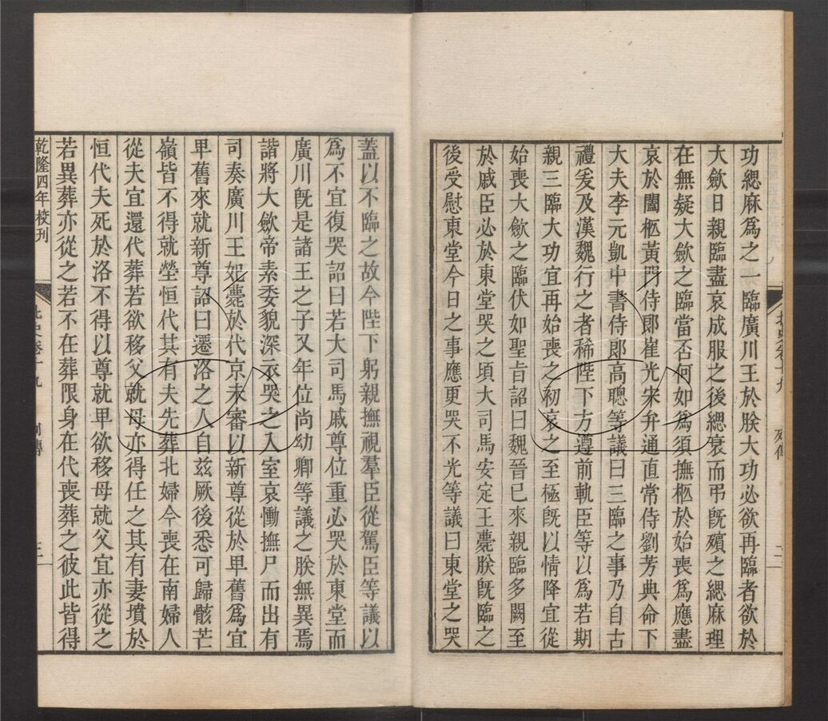 功緦麻爲之一臨廣川王於朕大功必欲再臨者欲於
大斂日親臨盡哀成服之後緦衰而弔旣殯之緦麻理
在無疑大斂之臨當否何如爲須撫柩於始喪爲應盡
哀於闔柩黃門侍郎崔光宋弁通直常侍劉芳典命下
大夫李元凱中書侍郎高聰等議曰三臨之事乃自古
禮爰及漢魏行之者稀陛下方遵前軌臣等以爲若期
親三臨大功宜再始喪之初哀之至極旣以情降宜從
始喪大斂之臨伏如聖旨詔曰魏晉已來親臨多闕至
於戚臣必於東堂哭之頃大司馬安定王薨朕旣臨之
後受慰東堂今日之事應更哭不光等議曰東堂之哭
北史卷十九 列傳 二
蓋以不臨之故今陛下躬親撫視羣臣從駕臣等議以
爲不宜復哭詔曰若大司馬戚尊位重必哭於東堂而
廣川旣是諸王之子又年位尚幼卿等議之朕無異焉
諧將大斂帝素委貌深衣哭之入室哀慟撫尸而出有
司奏廣川王妃薨於代京未審以新尊從於卑舊爲宜
卑舊來就新尊詔曰遷洛之人自茲厥後悉可歸骸芒
嶺皆不得就塋恒代其有夫先葬北婦今喪在南婦人
從夫宜還代葬若欲移父就母亦得任之其有妻墳於
恒代夫死於洛不得以尊就卑欲移母就父宜亦從之
若異葬亦從之若不在葬限身在代喪葬之彼此皆得
乾隆四年校刊 北史卷十九 列傳 三